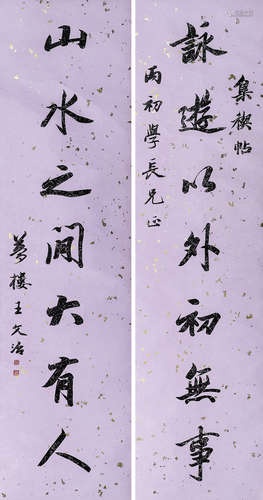 集禊帖
詠遊以外初無事
丙初學長兄正
山水之間大有人
夢樓王文治